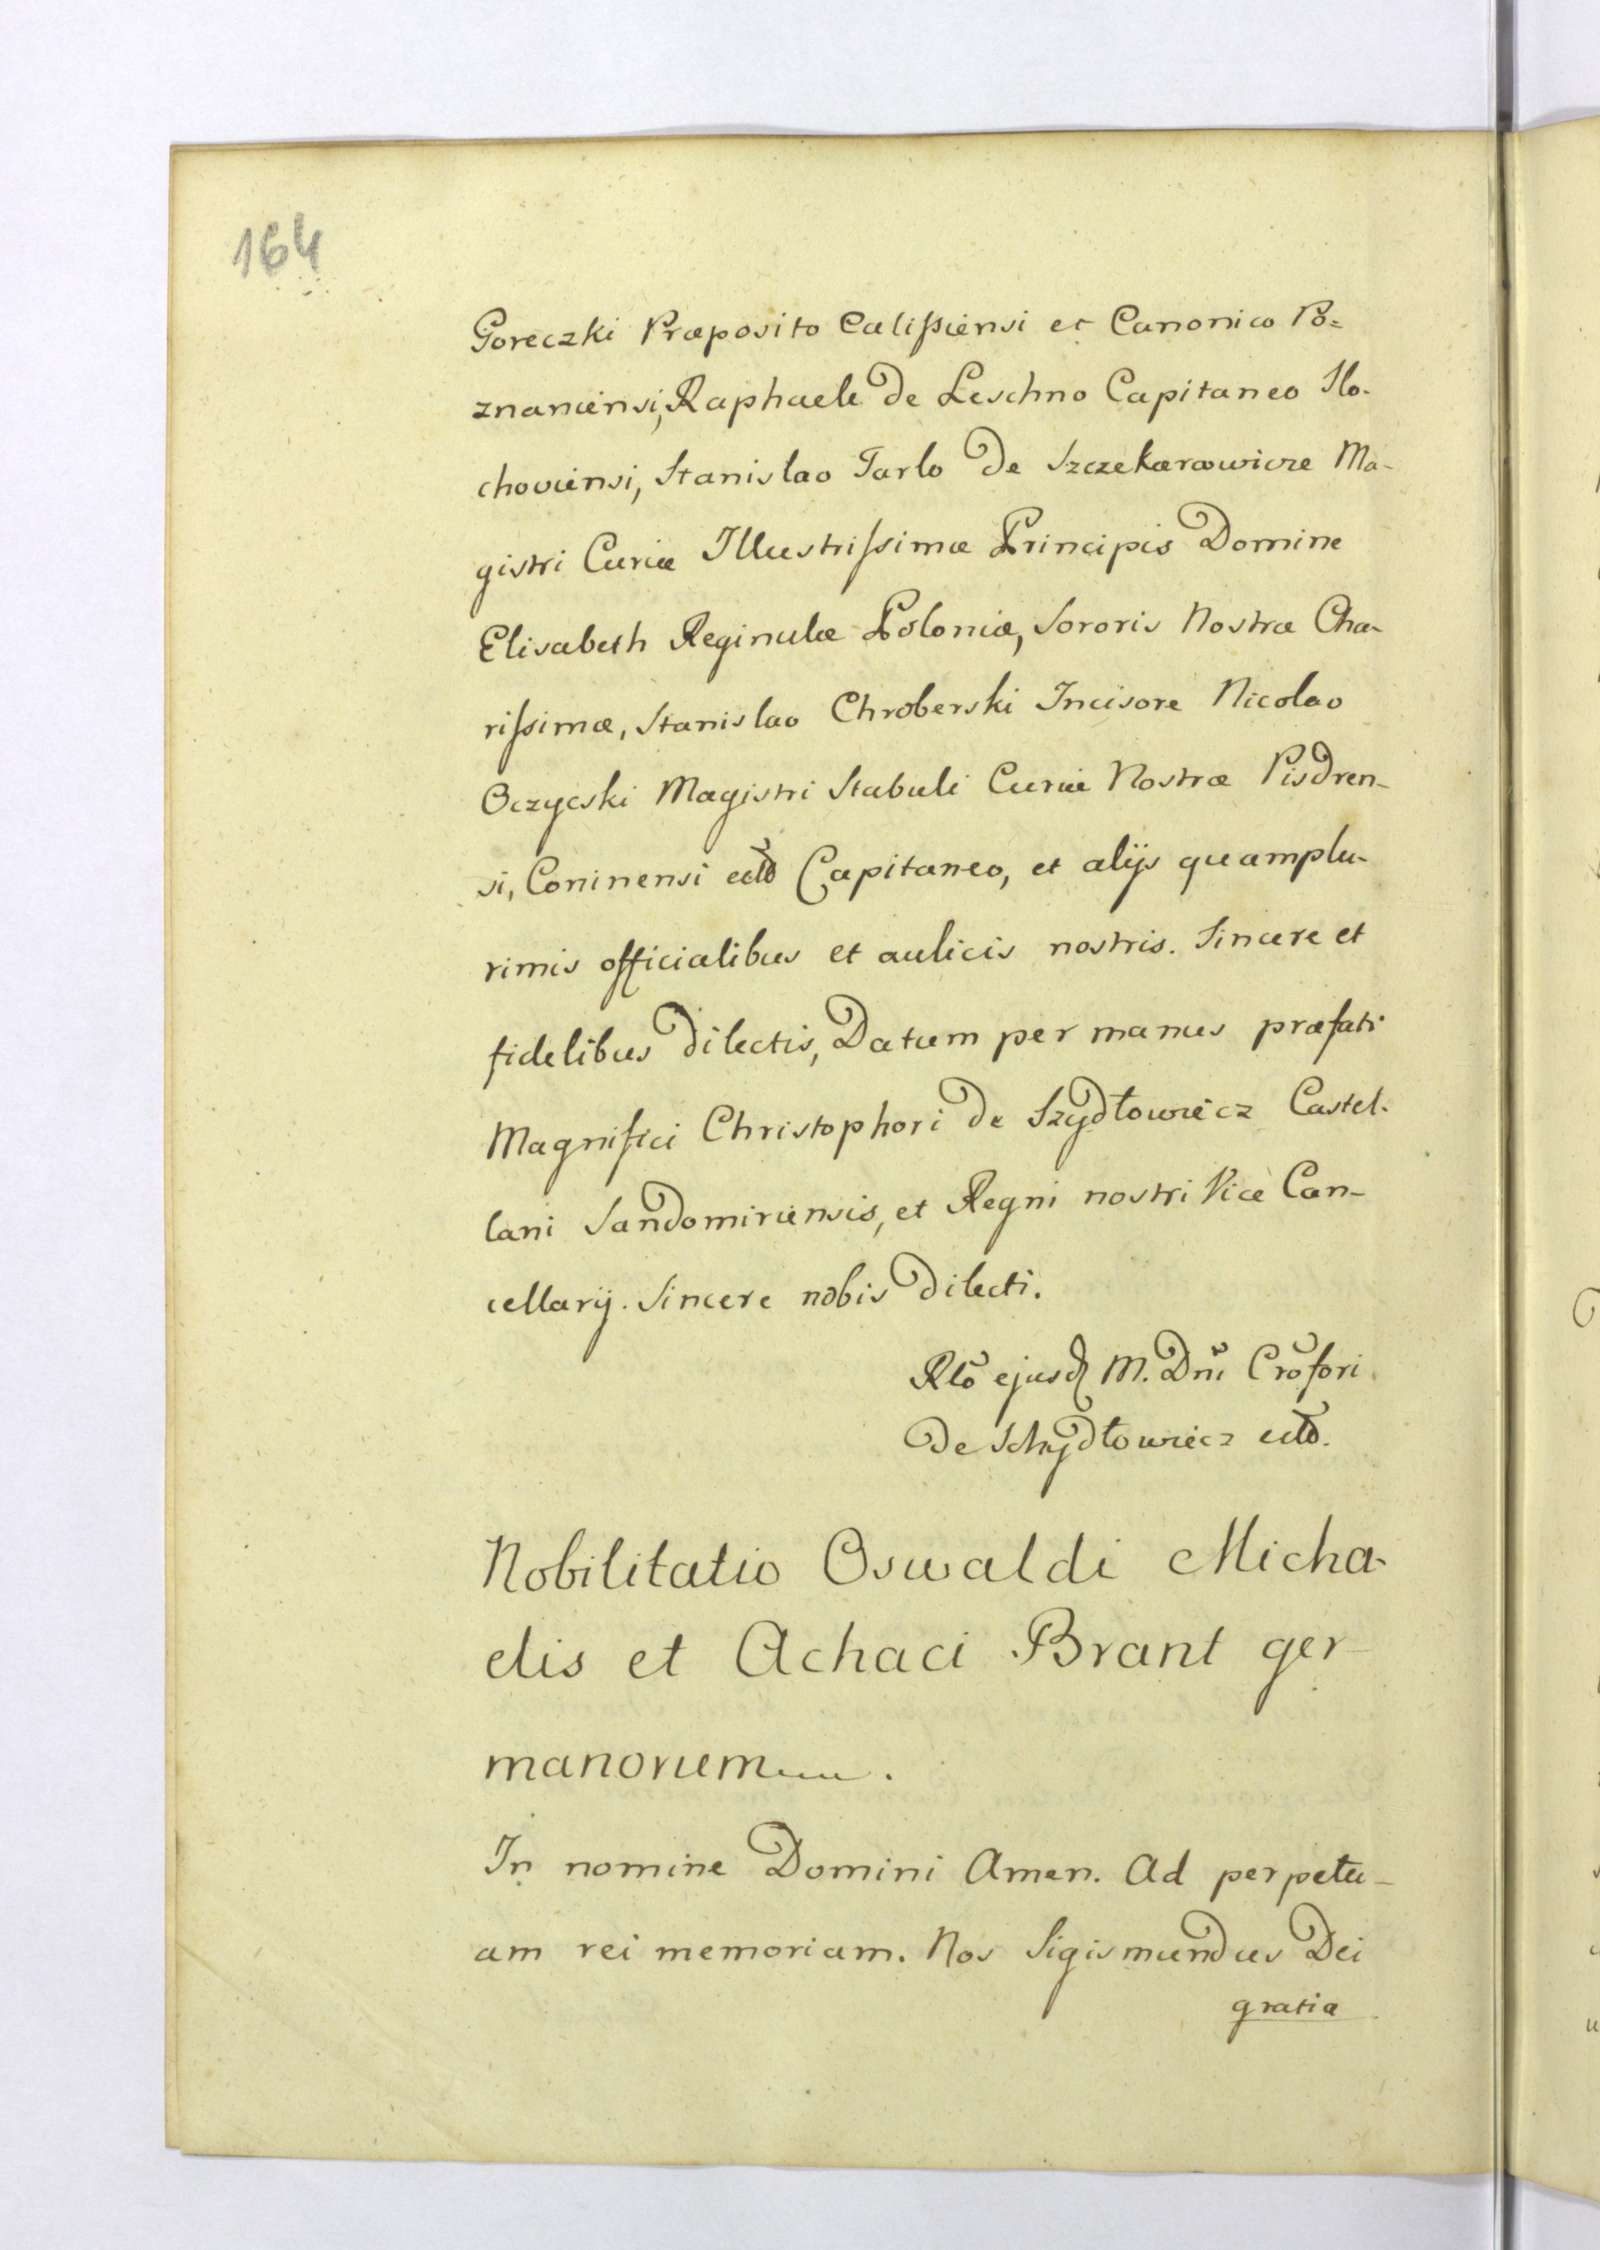 164
Goreczki Præposito Calißiensi et Canonico Po=
znaniensi, Raphaele de Leschno Capitaneo Slo-
choviensi, Stanislao Tarlo de Szczekarawicze Ma-
gistri Curiæ Illustrißimæ Principis Domine
Elisabeth Reginulæ Poloniæ, Sororis Nostræ Cha-
rißimæ, Stanislao Chroberski Incisore Nicolao
Oczycski Magistri Stabuli Curiæ Nostræ Pisdren-
si, Coninensi Capitaneo, et alijs quamplu-
rimis officialibus et aulicis nostris. Sincere et
fidelibus dilectis, Datum per manus præfati
Magnifici Christophori de Szydłowiecz Castel-
lani Sandomiriensis, et Regni nostri Vice Can-
cellarij. Sincere nobis dilecti.
Rlõ ejusd M. Dnĩ Crõfori
de Schydłowiecz
Nobilitatio Oswaldi Micha-
elis et Achaci Brant ger-
manorum.
In nomine Domini Amen. Ad perpetu-
am rei memoriam. Nos Sigismundus Dei
gratia